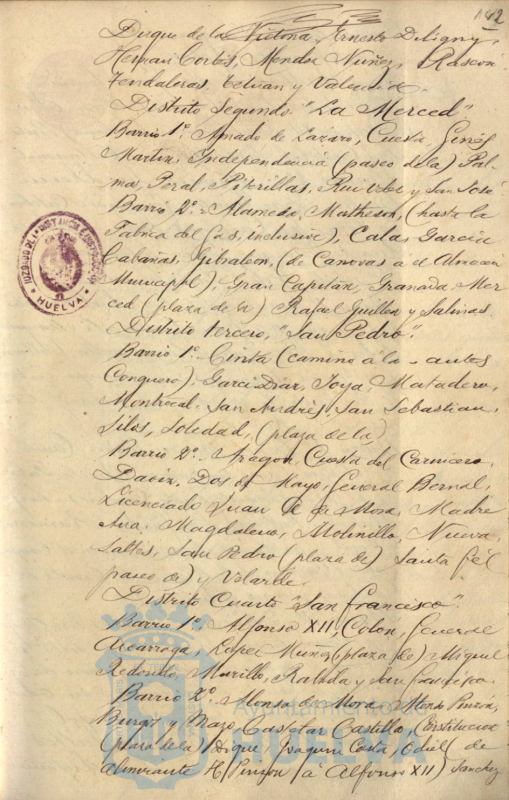 142
Duque de la Victoria, Ernesto Deligny,
Hernán Cortés, Mendez Nuñez, Rascon
Tendaleras, Tetuan y Valencia.
Distrito Segundo "La Merced"
Barrio 1º Amado de Lázaro, Cuesta, Ginés
Martin, Independencia (paseo de la) Pal-
ma, Peral, Piterillas, Rui Velez y San José
Barrio 2º Alameda, Matheson, (hasta la
Fabrica del Gas, inclusive), Calas, Garcia
Cabañas, Gibraleon, (de Canovas a el Almacen
Municipal), Gran Capitán, Granada, Mer-
ced (plaza de la) Rafael Guillen y Salinas.
Distrito tercero, "San Pedro".
Barrio 1º Cinta (camino á la - antes
Conquero), Garci Diaz, Joya, Matadero,
Montrocal, San Andrés, San Sebastian,
Silos, Soledad, (plaza de la)
Barrio 2º Aragon, Cuesta del Carnicero,
Daoiz, Dos de Mayo, General Bernal,
Licenciado Juan A. de Mora, Madre
Ana, Magdalena, Molinillo, Nueva,
Saltes, San Pedro (plaza de) Santa Fé (
paseo de) y Velarde.
Distrito Cuarto "San Francisco".
Barrio 1º Alfonso XII, Colón, General
Azcárraga, Lopez Muñoz (plaza de) Miguel
Redondo, Murillo, Rabida y San Francisco.
Barrio 2º Alonso de Mora, Alonso Pinzón,
Burgos y Mazo, Castelar, Castillo, Constitucion
(plaza de la) Duque, Joaquin Costa, Odiel (de
Almirante H. Pinzon á Alfonso XII) Sanchez
HUELVA
Ayuntamiento de
HUELVA